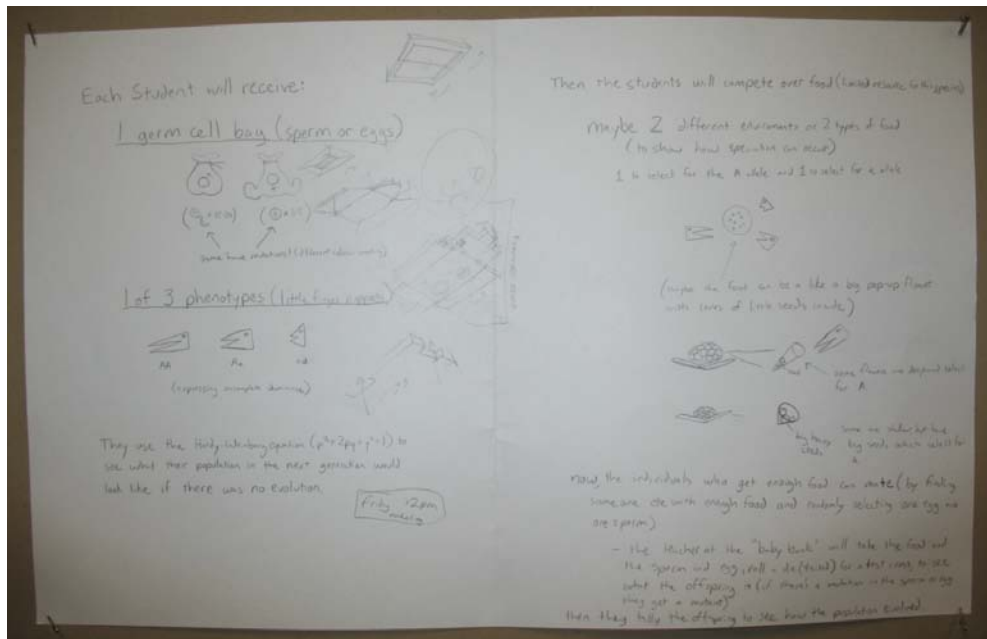 Each Student will receive:
1 germ cell bag (sperm or eggs)
some have mutations! (different
1 of 3 phenotypes (little finger puppets)
AA Aa aa
(expressing incomplete dominance)
They use the Hardy-Weinberg equation (p²+2pq+q²=1) to
see what their population in the next generation would
look like if there was no evolution.
12pm
Then the students will compete over food (limited resource
maybe 2 different environments or 2 types of food
(to show how speciation can occur)
1 to select for the A allele and 1 to select for a allele
(maybe the food can be a like a big pop-up flower
with seeds inside)
some flowers are deep and select
for A
some are shallow but have
big seeds which select for
a
now, the individuals who get enough food can mate (by finding
someone else with enough food and randomly selecting one egg and
one sperm)
- the teacher at the "baby bank" will take the food and
the sperm and egg, roll a die for a test cross to see
what the offspring is (if there's a mutation in the sperm or egg
they get a mutant)
then they tally the offspring to see how the population evolved.